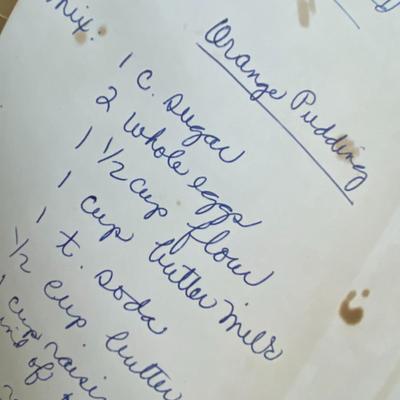 mix.
Orange Pudding
1 c. sugar
2 whole eggs
1 1/2 cup flour
1 cup butter milk
1 t. soda
1/2 cup butter
1 cup raisin
of